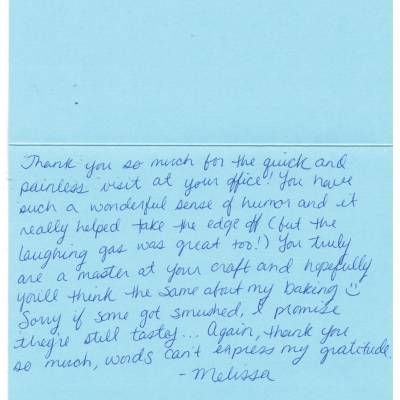 Thank you so much for the quick and
painless visit at your office! You have
such a wonderful sense of humor and it
really helped take the edge off (but the
laughing gas was great too!) You truly
are a master at your craft and hopefully
you'll think the same about my baking ☺
Sorry if some got smushed, I promise
they're still tasty... Again, thank you
so much, words can't express my gratitude.
- Melissa